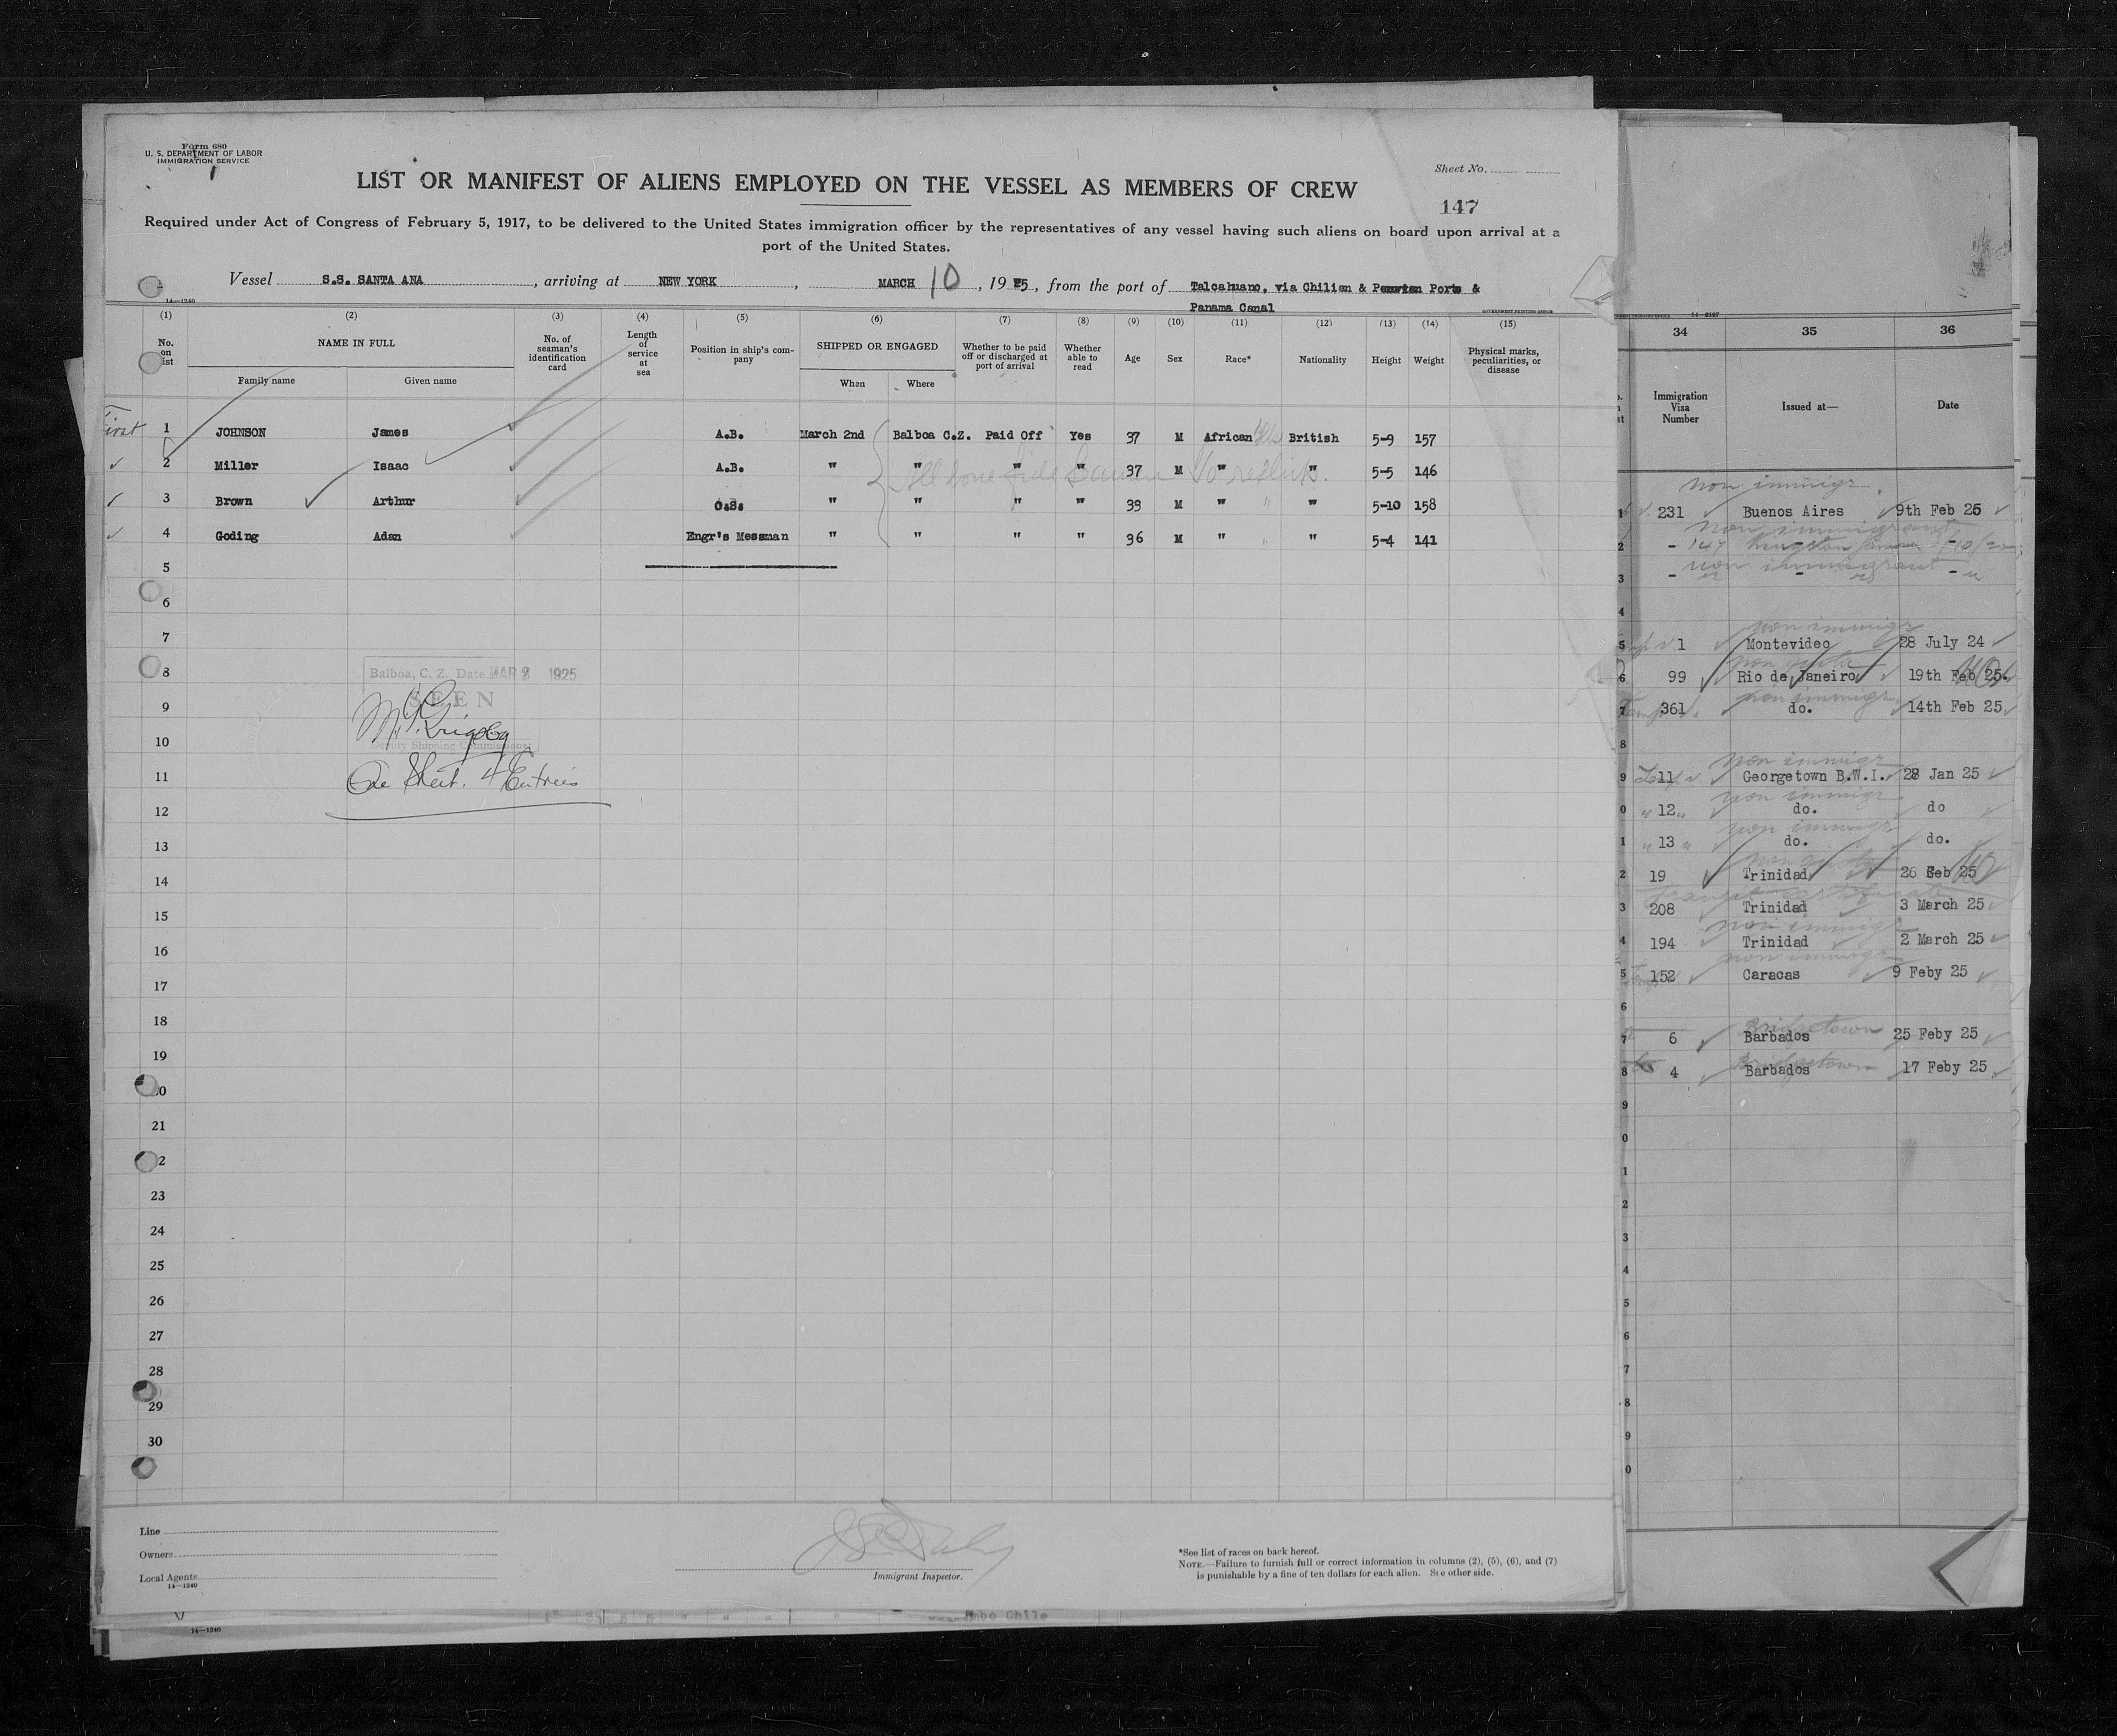 Form 680
U. S. DEPARTMENT OF LABOR
IMMIGRATION SERVICE
Sheet No.
LIST OR MANIFEST OF ALIENS EMPLOYED ON THE VESSEL AS MEMBERS OF CREW
147
Required under Act of Congress of February 5, 1917, to be delivered to the United States immigration officer by the representatives of any vessel having such aliens on board upon arrival at a
port of the United States.
Vessel S.S. SANTA ANA, arriving at NEW YORK, MARCH 10, 1925, from the port of Talcahuano, via Chilian & Peruvian Ports &
Panama Canal
14—1240
GOVERNMENT PRINTING OFFICE
(1) (2) (3) (4) (5) (6) (7) (8) (9) (10) (11) (12) (13) (14) (15)
No. on list
NAME IN FULL
Family name Given name
No. of seaman's identification card
Length of service at sea
Position in ship's company
SHIPPED OR ENGAGED
When Where
Whether to be paid off or discharged at port of arrival
Whether able to read
Age Sex Race* Nationality Height Weight
Physical marks, peculiarities, or disease
First 1 JOHNSON James A.B. March 2nd Balboa C.Z. Paid Off Yes 37 M African British 5-9 157
2 Miller Isaac A.B. " " " " 37 M " " 5-5 146
All bona fide Seamen
3 Brown Arthur O.S. " " " " 33 M " " " 5-10 158
4 Goding Adan Engr's Messman " " " " 36 M " " " 5-4 141
5
6
7
8
9
10
11
12
13
14
15
16
17
18
19
20
21
22
23
24
25
26
27
28
29
30
Balboa, C. Z. Date MAR 2 1925
SEEN
Deputy Shipping Commissioner
One Sheet. 4 Entries
Line
Owners
Local Agents
14—1240
Immigrant Inspector.
*See list of races on back hereof.
NOTE.—Failure to furnish full or correct information in columns (2), (5), (6), and (7)
is punishable by a fine of ten dollars for each alien. See other side.
14—1240
14—2107
34 35 36
Immigration Visa Number
Issued at—
Date
non immigr.
1 231 Buenos Aires 9th Feb 25
non immigrant
2 - 147 Kingston
non immigrant
3 -
4
non immigr
5 1 Montevideo 28 July 24
6 99 Rio de Janeiro 19th Feb 25.
non immigr
7 361 do. 14th Feb 25
8
non immigr
9 11 Georgetown B.W.I. 28 Jan 25
non immigr
0 12 do. do
non immigr
1 13 do. do.
2 19 Trinidad 26 Feb 25
3 208 Trinidad 3 March 25
non immigr
4 194 Trinidad 2 March 25
non immigr
5 152 Caracas 9 Feby 25
6
Bridgetown
7 6 Barbados 25 Feby 25
Bridgetown
8 4 Barbados 17 Feby 25
9
0
1
2
3
4
5
6
7
8
9
0